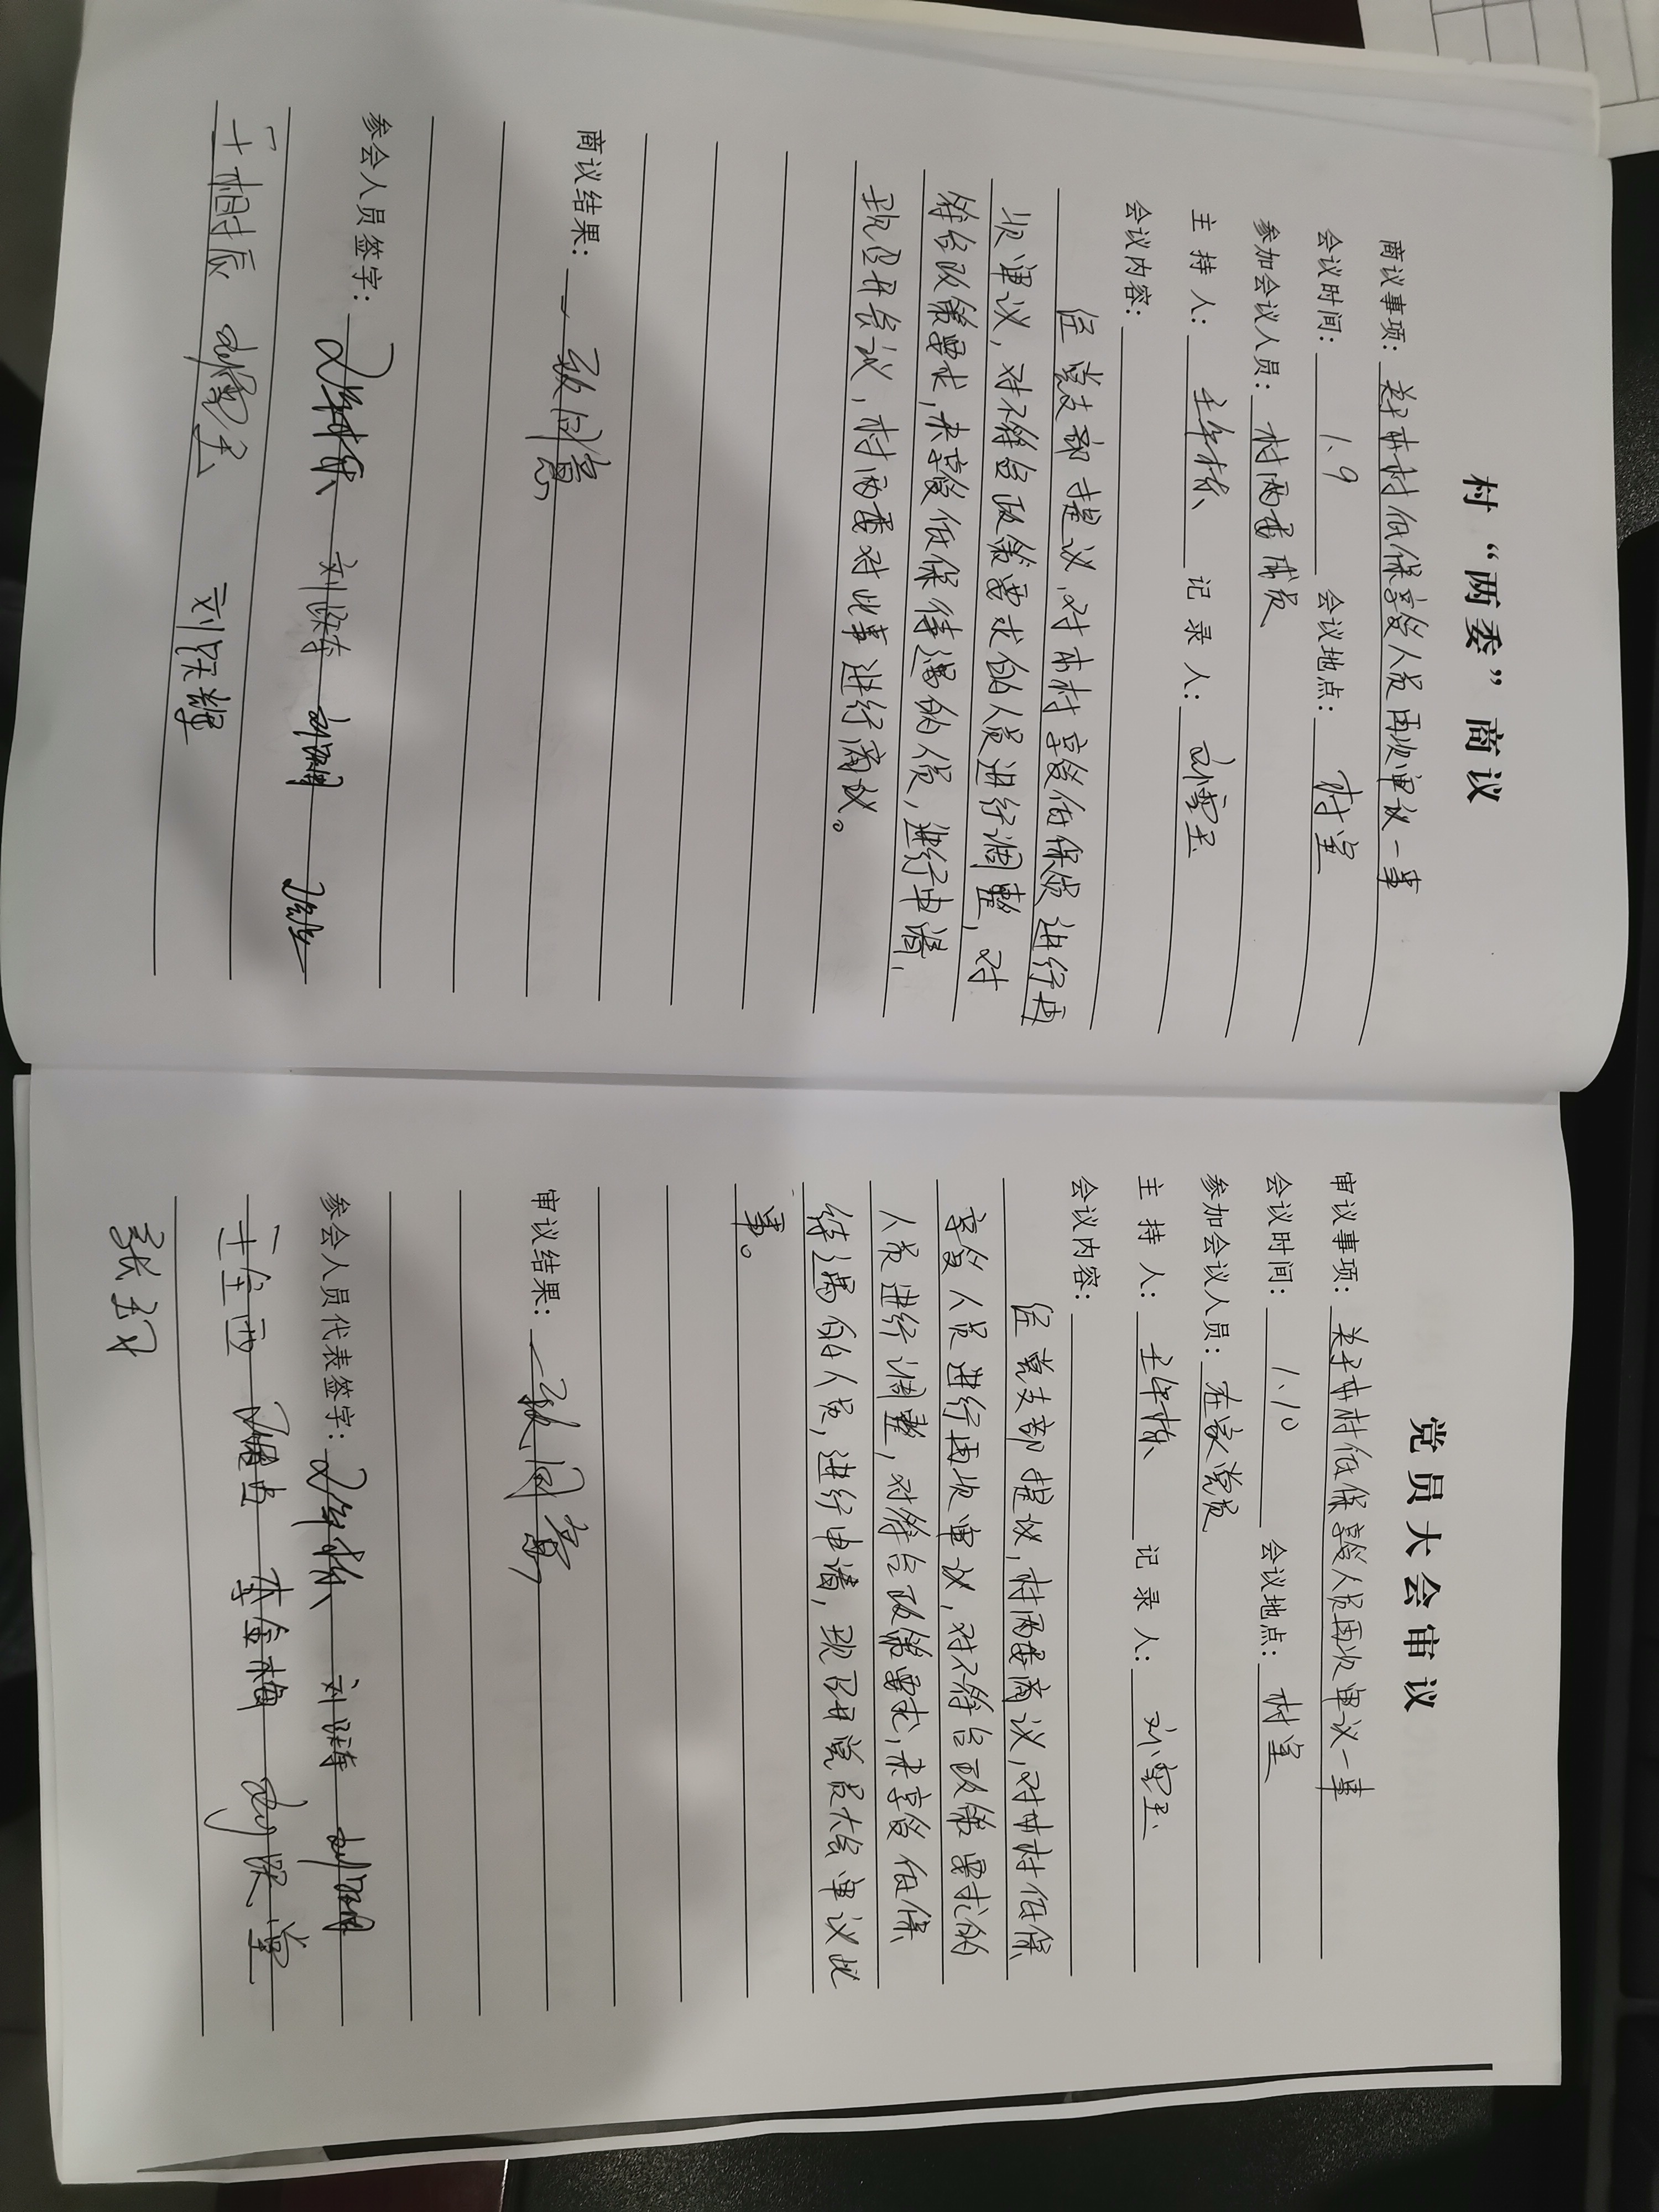 村“两委”商议
商议事项：关于本村低保享受人员再次审议一事
会议时间：1.9 会议地点：村室
参加会议人员：村两委成员
主持人：王年栋 记录人：刘雪玉
会议内容：
经党支部提议，对本村享受低保人员进行再
次审议，对不符合政策要求的人员进行调整，对
符合政策要求，未享受低保待遇的人员，进行申请，
现召开会议，村两委对此事进行商议。
商议结果：一致同意
参会人员签字：王年栋 刘跃东
王相辰 刘雪玉 刘跃辉
党员大会审议
审议事项：关于本村低保享受人员再次审议一事
会议时间：1.10 会议地点：村室
参加会议人员：在家党员
主持人：王年栋 记录人：刘雪玉
会议内容：
经党支部提议，村两委商议，对本村低保
享受人员进行再次审议，对不符合政策要求的
人员进行调整，对符合政策要求，未享受低保
待遇的人员，进行申请，现召开党员大会审议此
事。
审议结果：一致同意
参会人员代表签字：王年栋 刘跃东
李金梅 刘跃堂